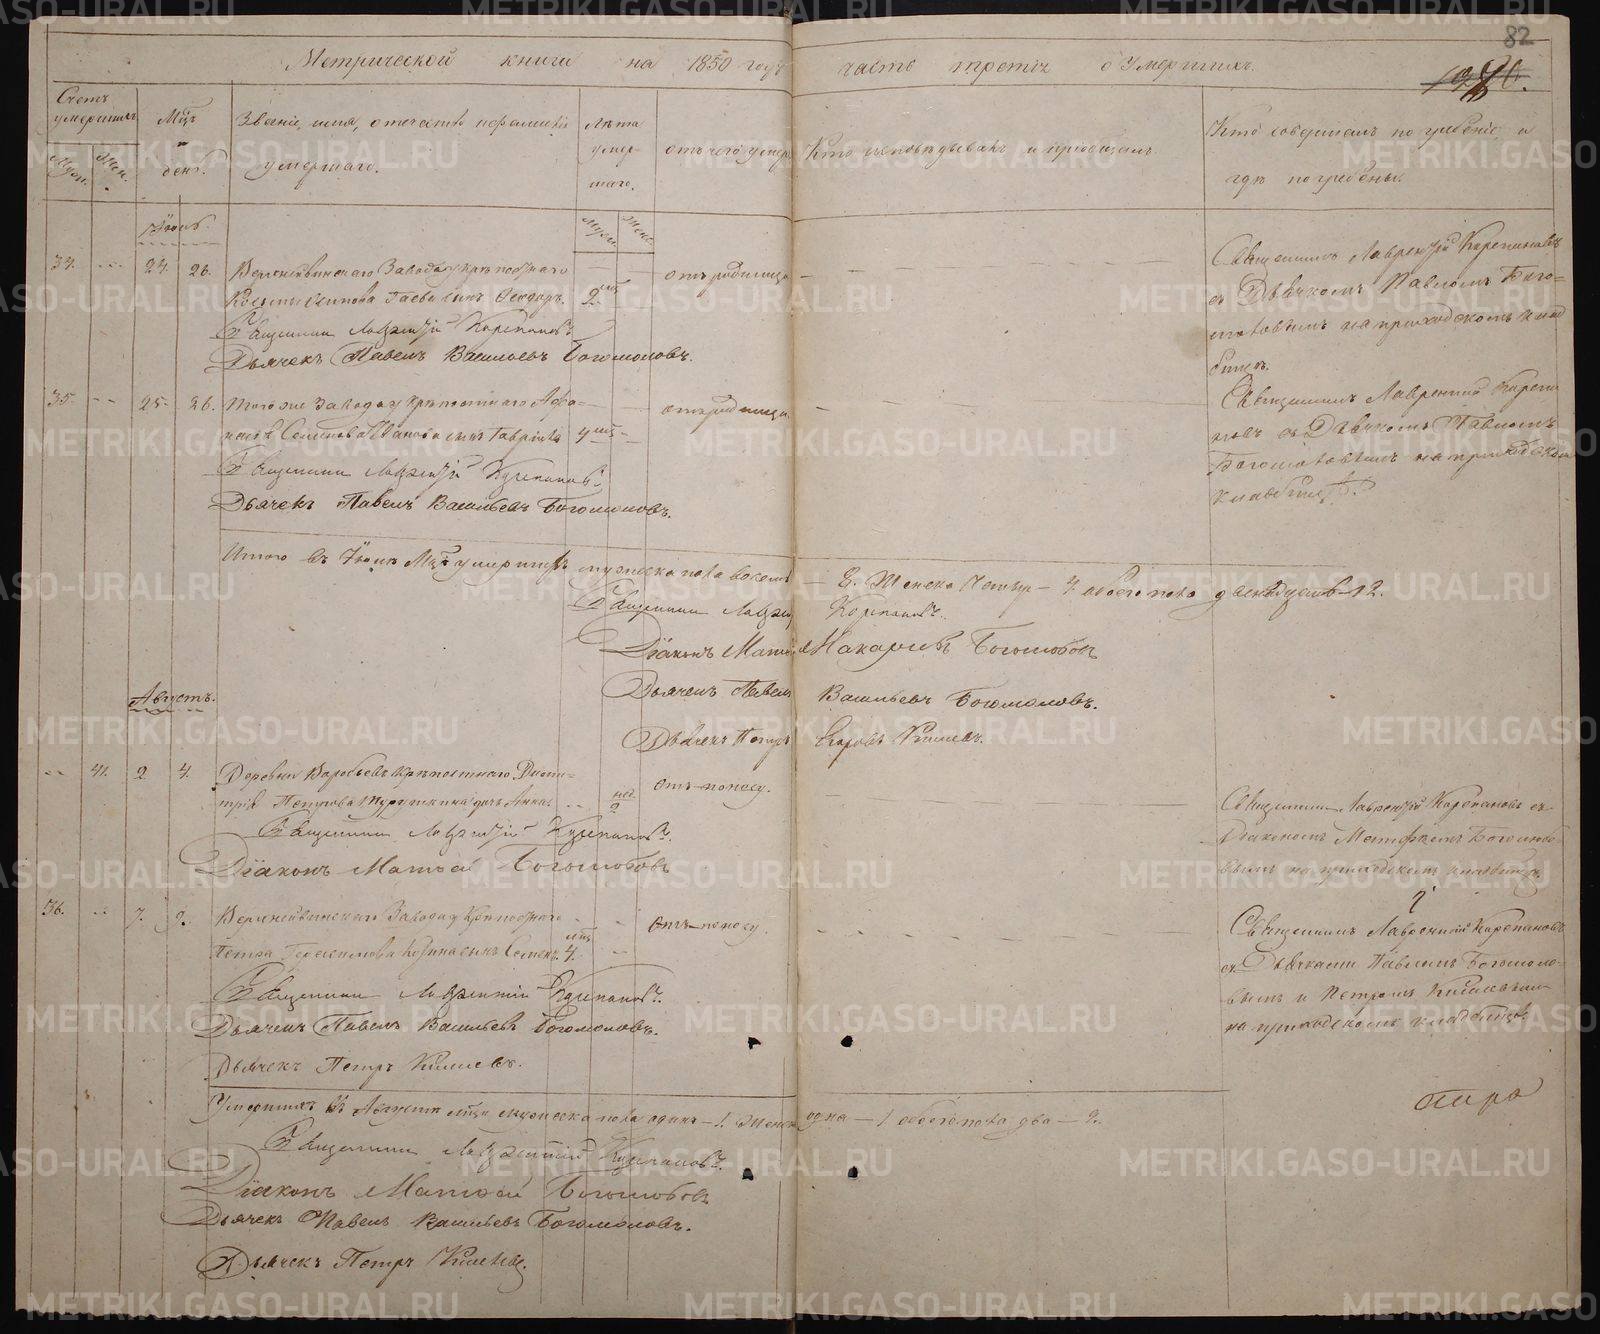 82
Метрической книги на 1850 годъ часть третія о умершихъ.
Счетъ умершихъ
Муж. Жен.
Мцъ и день.
Званіе, имя, отечество и фамилія умершаго.
Лѣта умершаго.
Муж. Жен.
отъ чего умеръ
Кто исповѣдывалъ и пріобщалъ.
Кто совершалъ погребеніе и гдѣ погребены.
34. 24. 26. Верхнейвинскаго Завода крѣпостнаго
Осипова Гаева сынъ Ѳеодоръ. 2 отъ родимца
Священникъ Лаврентій Карепановъ
Дьячекъ Павелъ Васильевъ Богомоловъ.
Священникъ Лаврентій Карепановъ
съ Дьячкомъ Павломъ Бого-
моловымъ на приходскомъ клад
бищѣ.
35. 25. 26. Тогоже Завода крѣпостнаго Афа-
насья Семенова Иванова сынъ Гавріилъ 4 отъ родимца
Священникъ Лаврентій Карепановъ
Дьячекъ Павелъ Васильевъ Богомоловъ.
Священникъ Лаврентій Карепа
новъ съ Дьячкомъ Павломъ
Богомоловымъ на приходскомъ
кладбищѣ.
Итого въ мцѣ умершихъ мужеска пола восемь — 8. Женска четыре — 4. обоего пола двенадцать — 12.
Священникъ Лаврентій Карепановъ.
Діаконъ Матѳей Макаріевъ Боголюбовъ
Дьячекъ Павелъ Васильевъ Богомоловъ.
Дьячекъ Петръ Егоровъ Киселевъ.
Августъ.
41. 2 4. Деревни Воробьевъ крѣпостнаго Дими-
трія Петрова дочь Анна. нед. 2 Отъ поносу.
Священникъ Лаврентій Карепановъ
Діаконъ Матѳей Боголюбовъ
Священникъ Лаврентій Карепановъ съ
Діакономъ Матфеемъ Боголюбо-
вымъ на приходскомъ кладбищѣ.
36. 7. 9. Верхнейвинскаго Завода крѣпостнаго
Петра Герасимова сынъ Семенъ. 4. Отъ поносу.
Священникъ Лаврентій Карепановъ.
Дьячекъ Павелъ Васильевъ Богомоловъ.
Дьячекъ Петръ Киселевъ.
Священникъ Лаврентій Карепановъ
съ Дьячками Павломъ Богомоло-
вымъ и Петромъ Киселевымъ
на приходскомъ кладбищѣ.
Умершихъ въ Августѣ мцѣ мужеска пола одинъ — 1. Женска одна — 1 обоего пола два — 2.
Священникъ Лаврентій Карепановъ.
Діаконъ Матѳей Боголюбовъ
Дьячекъ Павелъ Васильевъ Богомоловъ.
Дьячекъ Петръ Киселевъ.
METRIKI.GASO-URAL.RU